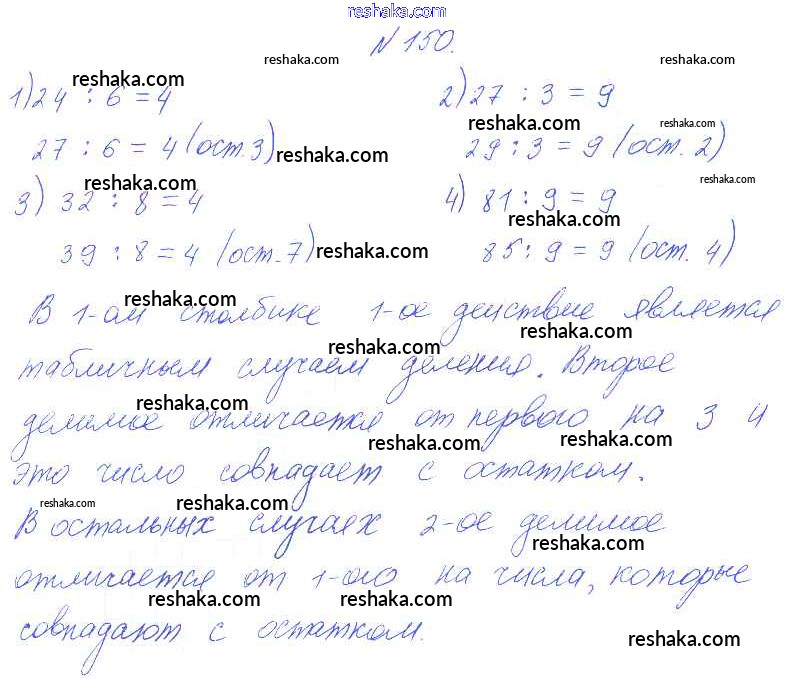 reshaka.com
N 150.
reshaka.com reshaka.com reshaka.com
1) 24 : 6 = 4 2) 27 : 3 = 9
reshaka.com reshaka.com
27 : 6 = 4 (ост. 3) 29 : 3 = 9 (ост. 2)
reshaka.com
reshaka.com reshaka.com
3) 32 : 8 = 4 4) 81 : 9 = 9
reshaka.com
39 : 8 = 4 (ост. 7) 85 : 9 = 9 (ост. 4)
reshaka.com
reshaka.com
В 1-ом столбике 1-ое действие является
reshaka.com reshaka.com
табличным случаем деления. Второе
reshaka.com
делимое отличается от первого на 3 И
reshaka.com reshaka.com
это число совпадает с остатком.
reshaka.com reshaka.com
В остальных случаех 2-ое делимое
reshaka.com
отличается от 1-ого на числа, которые
reshaka.com reshaka.com
совпадают с остатком.
reshaka.com